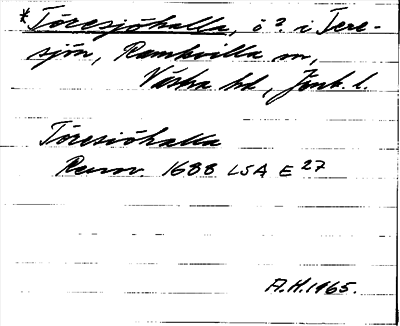 *Töresjöhalla, ö? i Tere-
sjön, Ramkvilla sn,
Västra hd, Jönk. l.
Töresiöhalla
Renov. 1688 LSA E 27
A.H. 1965.